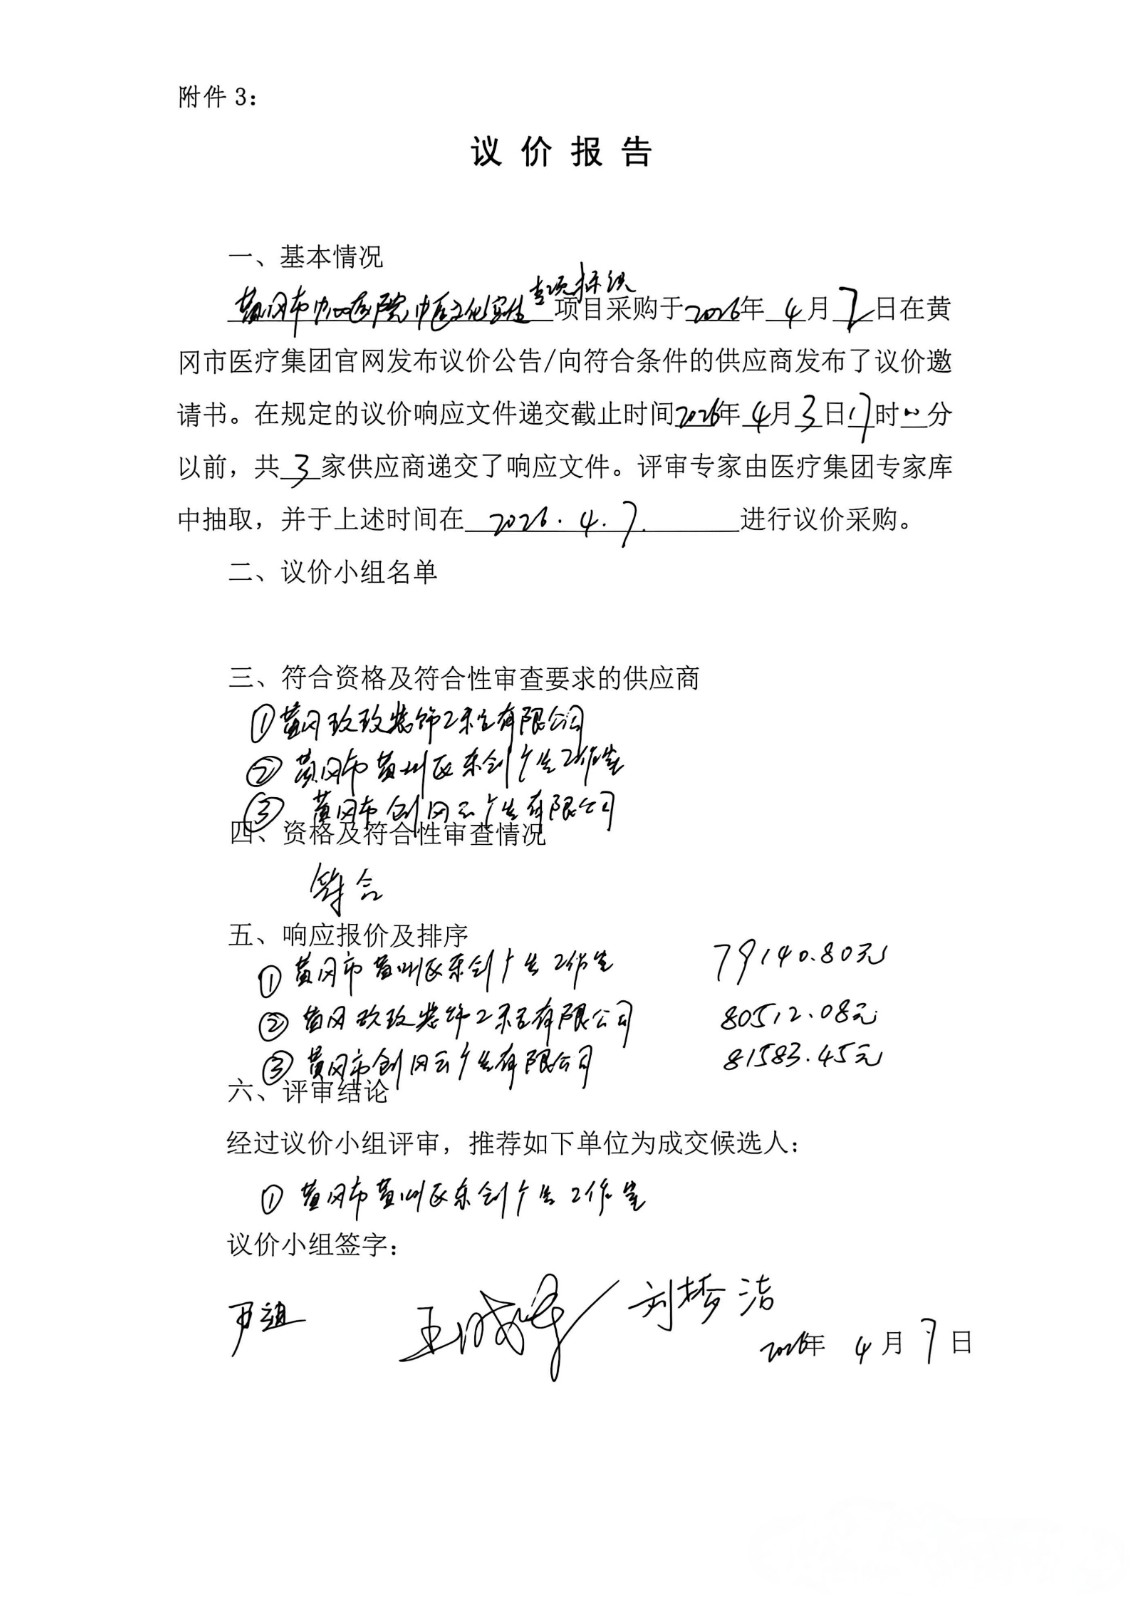 附件 3：
议 价 报 告
一、基本情况
专项标识
黄冈市中心医院中医文化宣传项目采购于2026年 4月 2日在黄
冈市医疗集团官网发布议价公告/向符合条件的供应商发布了议价邀
请书。在规定的议价响应文件递交截止时间2026年 4月 3日17时00分
以前，共 3 家供应商递交了响应文件。评审专家由医疗集团专家库
中抽取，并于上述时间在 2026.4.7. 进行议价采购。
二、议价小组名单
三、符合资格及符合性审查要求的供应商
① 黄冈玫玫装饰工程有限公司
② 黄冈市黄州区东创广告工作室
③ 黄冈市创冈云广告有限公司
四、资格及符合性审查情况
符合
五、响应报价及排序
① 黄冈市黄州区东创广告工作室 79140.80元
② 黄冈玫玫装饰工程有限公司 80512.08元
③ 黄冈市创冈云广告有限公司 81583.45元
六、评审结论
经过议价小组评审，推荐如下单位为成交候选人：
① 黄冈市黄州区东创广告工作室
议价小组签字：
刘梦洁
2026年 4月 7日